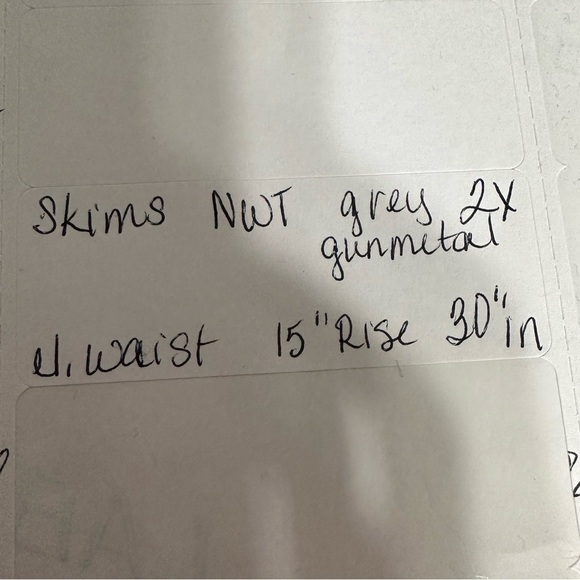 Skims NWT grey 2X
gunmetal
el. waist 15" Rise 30" in